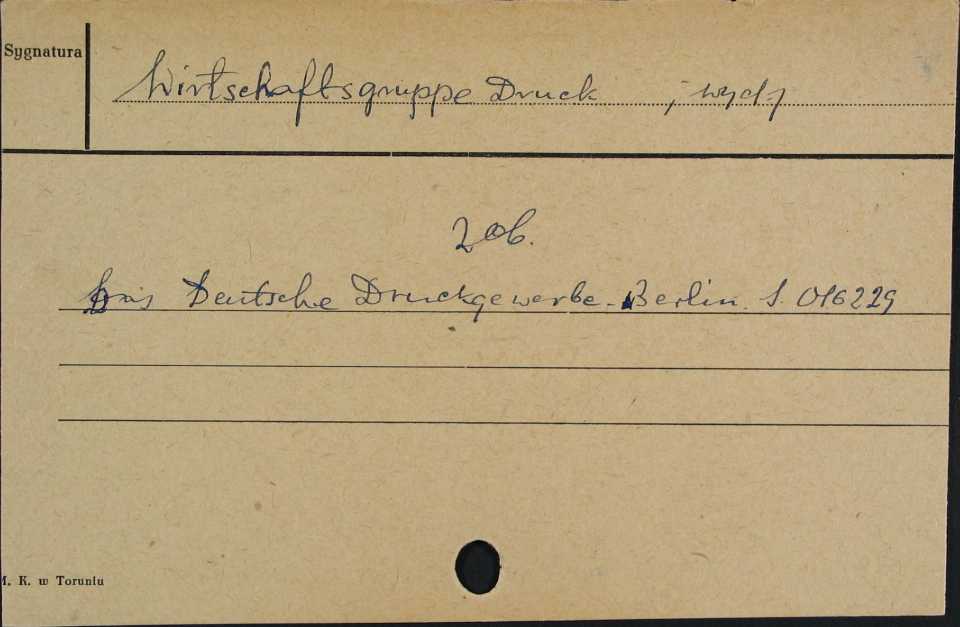 Sygnatura
Wirtschaftsgruppe Druck ; wyd.
Zob.
Das Deutsche Druckgewerbe. Berlin. S. 016229
M. K. w Toruniu